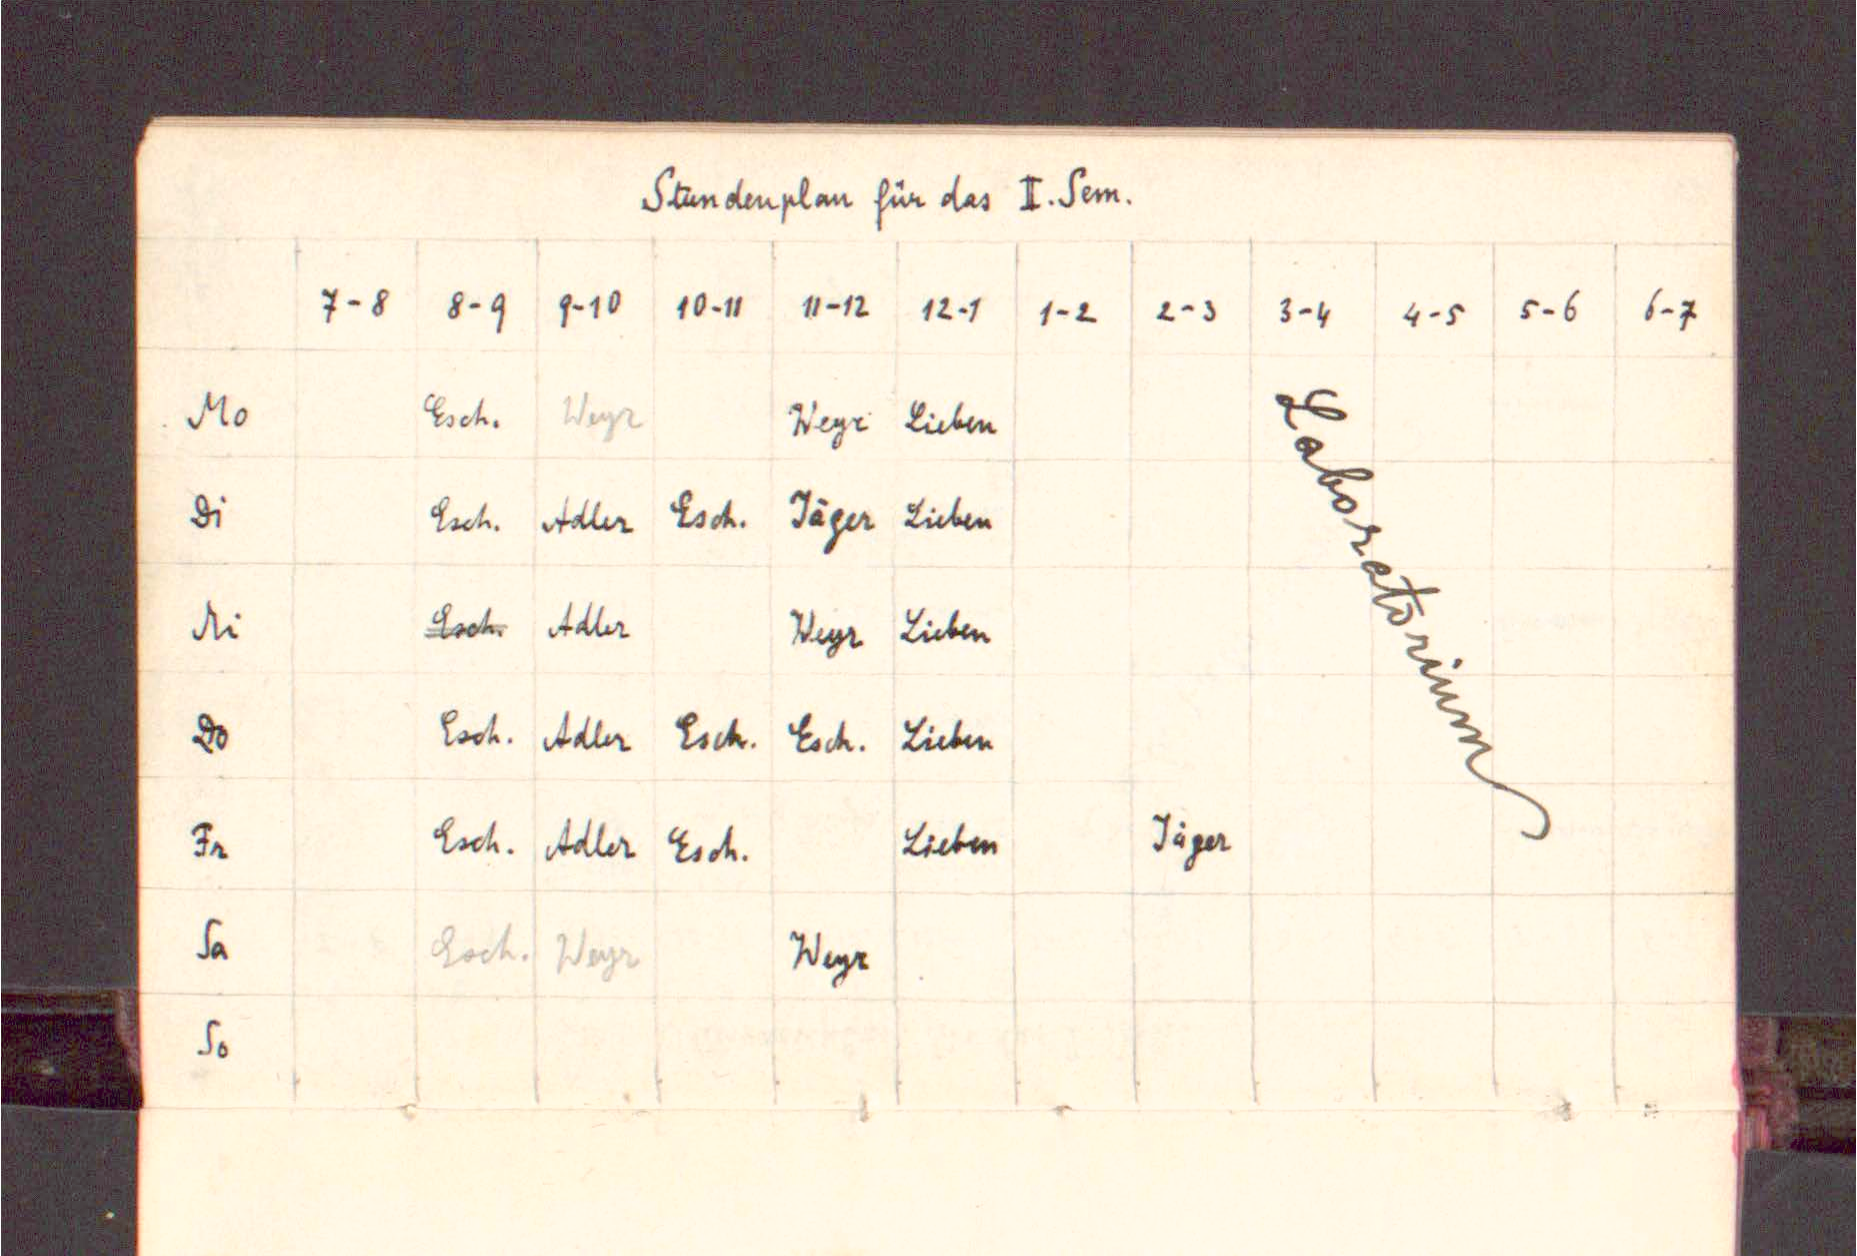 Stundenplan für das II. Sem.
7-8 8-9 9-10 10-11 11-12 12-1 1-2 2-3 3-4 4-5 5-6 6-7
Mo Esch. Weyr Weyr Lieben
Di Esch. Adler Esch. Jäger Lieben
Mi Esch. Adler Weyr Lieben
Do Esch. Adler Esch. Esch. Lieben
Fr Esch. Adler Esch. Lieben Jäger
Sa Esch. Weyr Weyr
So
Laboratorium